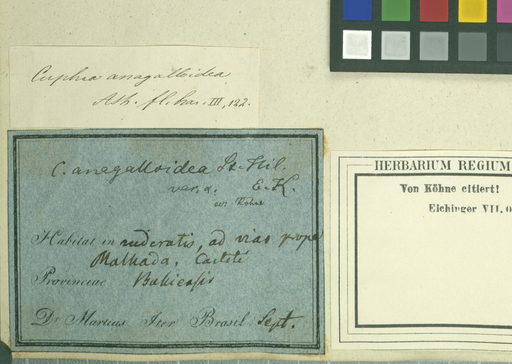 Cuphea anagalloidea
Ath. fl. bras. III, 122.
C. anagalloidea St. Hil.
var. α. E. K.
Habitat in ruderatis, ad vias prope
Malhada, Caiteté
Provinciae Bahiensis
Dr Martius Iter Brasil. Sept.
HERBARIUM REGIUM
Von Köhne citiert!
Eichinger VII. 0